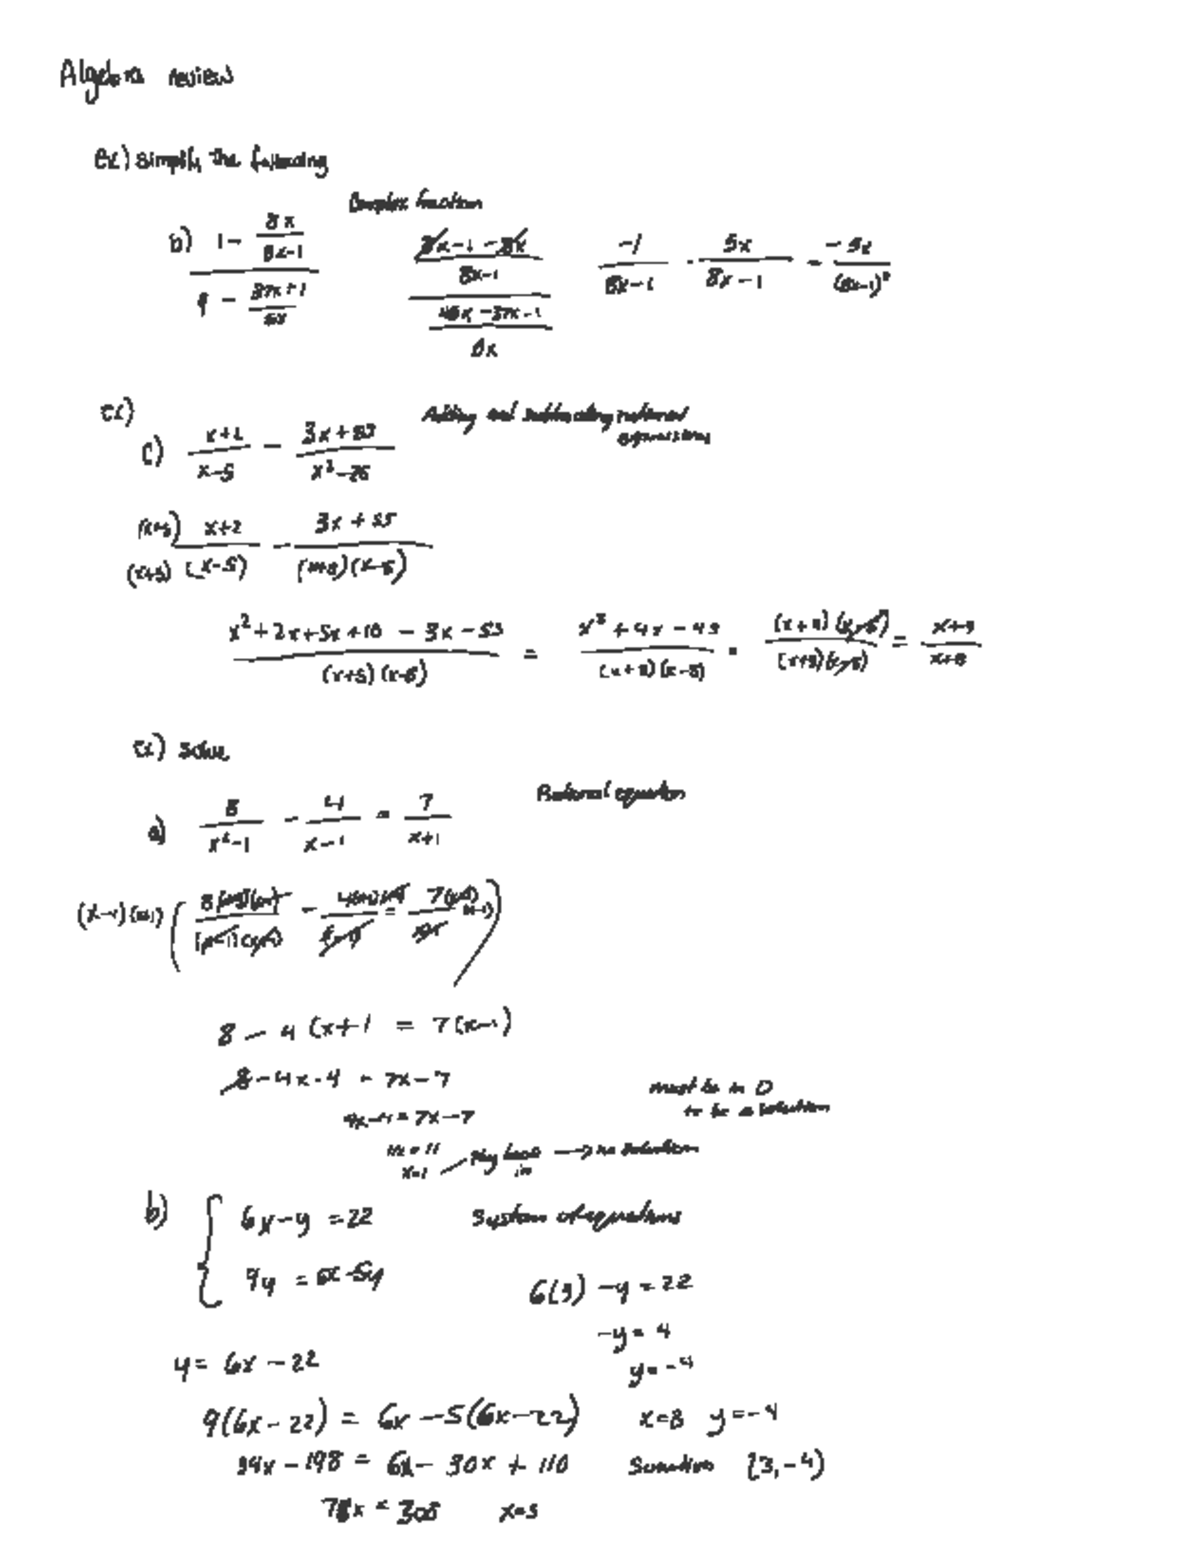 Algebra review
ex) simplify the following
Complex fraction
b) (1 - 8x/(8x-1)) / (9 - (37x+1)/5x)   ((8x-1-8x)/(8x-1)) / ((45x-37x-1)/5x)   -1/(8x-1) · 5x/(8x-1) = -5x/(8x-1)²
ex) Adding and subtracting rational expressions
c) (x+2)/(x-5) - (3x+53)/(x²-25)
(x+5)/(x+5) (x+2)/(x-5) - (3x+55)/((x+5)(x-5))
(x²+2x+5x+10-3x-55)/((x+5)(x-5)) = (x²+4x-45)/((x+5)(x-5)) = ((x+9)(x-5))/((x+5)(x-5)) = (x+9)/(x+5)
ex) solve
Rational equation
a) 8/(x²-1) - 4/(x-1) = 7/(x+1)
8 - 4(x+1 = 7(x-1)
8-4x-4 = 7x-7
must be in D
to be a solution
-4x-4 = 7x-7
11x = 11
x=1 plug back in → no solution
b) { 6x-y = 22
System of equations
9y = 6x-5y
6(3) -y = 22
-y = 4
y = -4
y = 6x - 22
9(6x-22) = 6x -5(6x-22)   x=3 y=-4
54x - 198 = 6x - 30x + 110   Solution (3,-4)
78x = 308   x=3